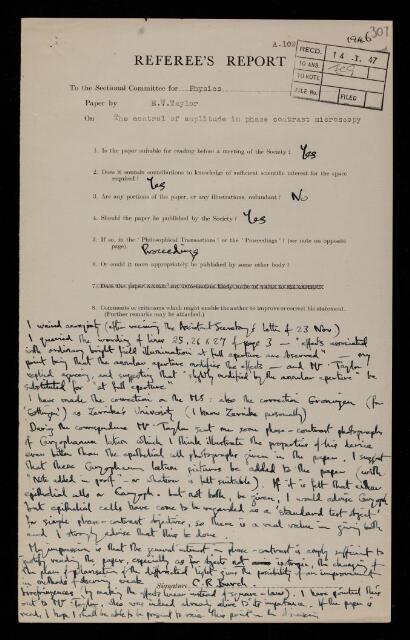 1946
307
A.102
RECD. 14 . 1. 47
TO ANS.
TO NOTE
FILE No. FILED
REFEREE'S REPORT
To the Sectional Committee for Physics
Paper by E.W.Taylor
On The control of amplitude in phase contrast microscopy
1. Is the paper suitable for reading before a meeting of the Society? Yes
2. Does it contain contributions to knowledge of sufficient scientific interest for the space
required? Yes
3. Are any portions of the paper, or any illustrations, redundant? No
4. Should the paper be published by the Society? Yes
5. If so, in the 'Philosophical Transactions' or the 'Proceedings'? (see note on opposite
page). Proceedings
6. Or could it more appropriately be published by some other body?
8. Comments or criticisms which might enable the author to improve or correct his statement.
(Further remarks may be attached.)
I waived anonymity (after receiving the Assistant Secretary's letter of 23 Nov)
I queried the wording of lines 25, 26 & 27 of page 3 – "effects associated
with ordinary bright field illumination at full aperture are observed" — my
point being that the annular aperture modifies the effects – and Mr Taylor
replied agreeing, and suggesting that "slightly modified by the annular aperture" be
substituted for "at full aperture".
I have made the correction on the MS: also the correction Groningen (for
Gottingen) as Zernike's University (I know Zernike personally)
During the correspondence Mr Taylor sent me some phase-contrast photographs
of which I think illustrate the properties of his device
even better than the epithelial cell photographs given in the paper. I suggest
that these pictures be added to the paper (with
'Note added in proof' – or whatever is felt suitable). If it is felt that either
epithelial cells or but not both, be given, I would advise
but epithelial cells have come to be regarded as a 'standard test object'
for simple phase-contrast objectives, so there is a real value in giving both
and I strongly advise that this be done.
My impression is that the general interest in phase-contrast is amply sufficient to
justify reading the paper, especially as for objects not isotropic, the changing of
the plane of polarisation of the diffracted light gives the possibility of an improvement
in methods of observing weak
Signature C. R. Burch.
birefringences (by making the effects linear instead of square-law). I have pointed this
out to Mr Taylor, who was indeed already alive to its importance. If the paper is
read, I hope I shall be able to be present to raise this point in discussion